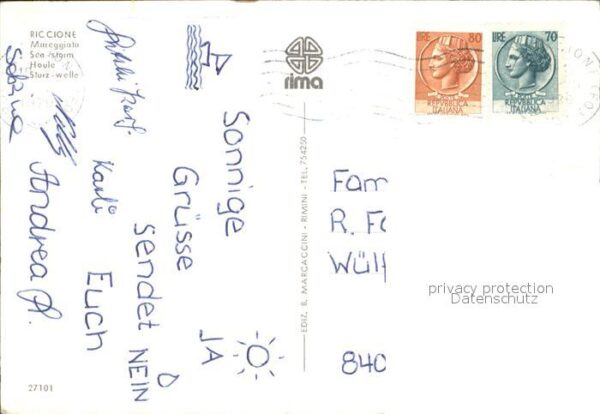 RICCIONE
Mareggiata
Sea-storm
Houle
Sturz-welle
rima
LIRE 80
POSTE
REPUBBLICA
ITALIANA
LIRE 70
POSTE
REPUBBLICA
ITALIANA
Sonnige
Grüsse JA
sendet NEIN
Euch
Karli
Andrea
Sabine
Fam
R. Fo
Wülf
840
EDIZ. B. MARCACCINI - RIMINI - TEL. 754250
27101
privacy protection
Datenschutz